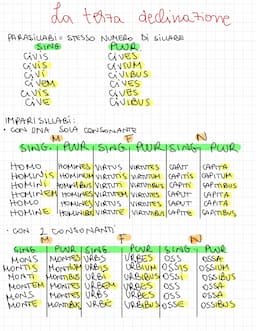 La terza declinazione
PARASILLABI = STESSO NUMERO DI SILLABE
SING PLUR
CIVIS CIVES
CIVIS CIVIUM
CIVI CIVIBUS
CIVEM CIVES
CIVIS CIVES
CIVE CIVIBUS
IMPARISILLABI:
• CON UNA SOLA CONSONANTE
M F N
SING. PLUR SING PLUR SING PLUR
HOMO HOMINES VIRTUS VIRTUTES CAPUT CAPITA
HOMINIS HOMINUM VIRTUTIS VIRTUTUM CAPITIS CAPITUM
HOMINI HOMINIBUS VIRTUTI VIRTUTIBUS CAPITI CAPITIBUS
HOMINEM HOMINES VIRTUTEM VIRTUTES CAPUT CAPITA
HOMO HOMINES VIRTUS VIRTUTES CAPUT CAPITA
HOMINE HOMINIBUS VIRTUTE VIRTUTIBUS CAPITE CAPITIBUS
• CON 2 CONSONANTI
M F N
SING PLUR SING PLUR SING PLUR
MONS MONTES URBS URBES OSS OSSA
MONTIS MONTIUM URBIS URBIUM OSSIS OSSIUM
MONTI MONTIBUS URBI URBIBUS OSSI OSSIBUS
MONTEM MONTES URBEM URBES OSS OSSA
MONS MONTES URBS URBES OSS OSSA
MONTE MONTIBUS URBE URBIBUS OSSE OSSIBUS